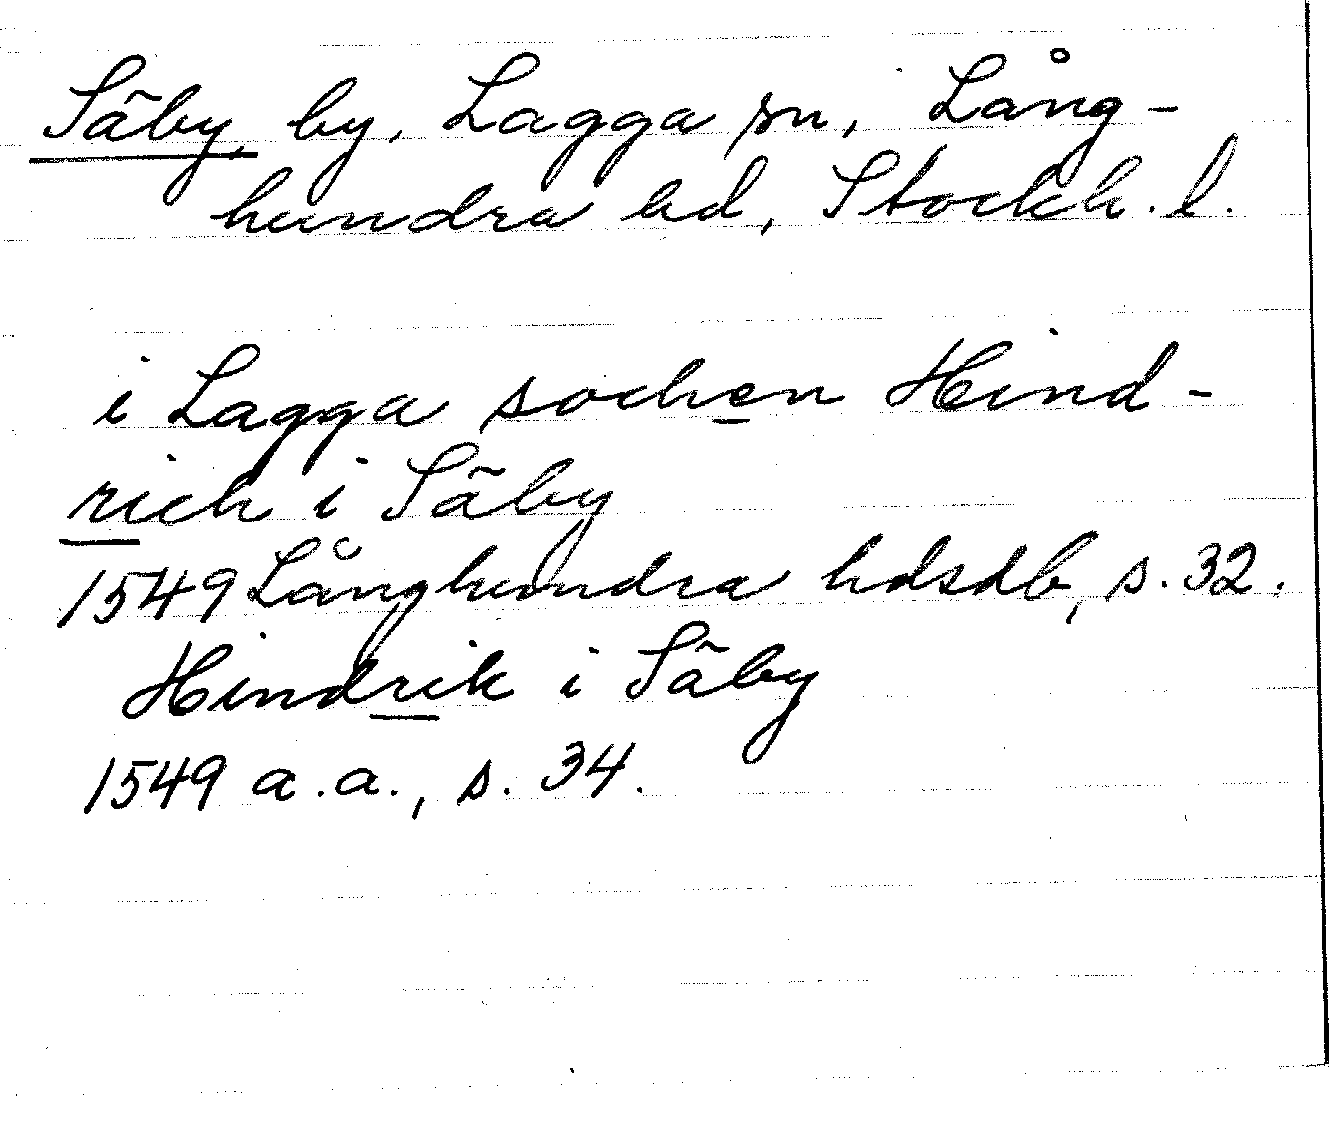 Säby, by, Lagga sn, Lång-
hundra hd, Stockh. l.
i Lagga sochen Hind-
rich i Säby
1549 Långhundra hdsdb, s. 32.
Hindrik i Säby
1549 a.a., s. 34.